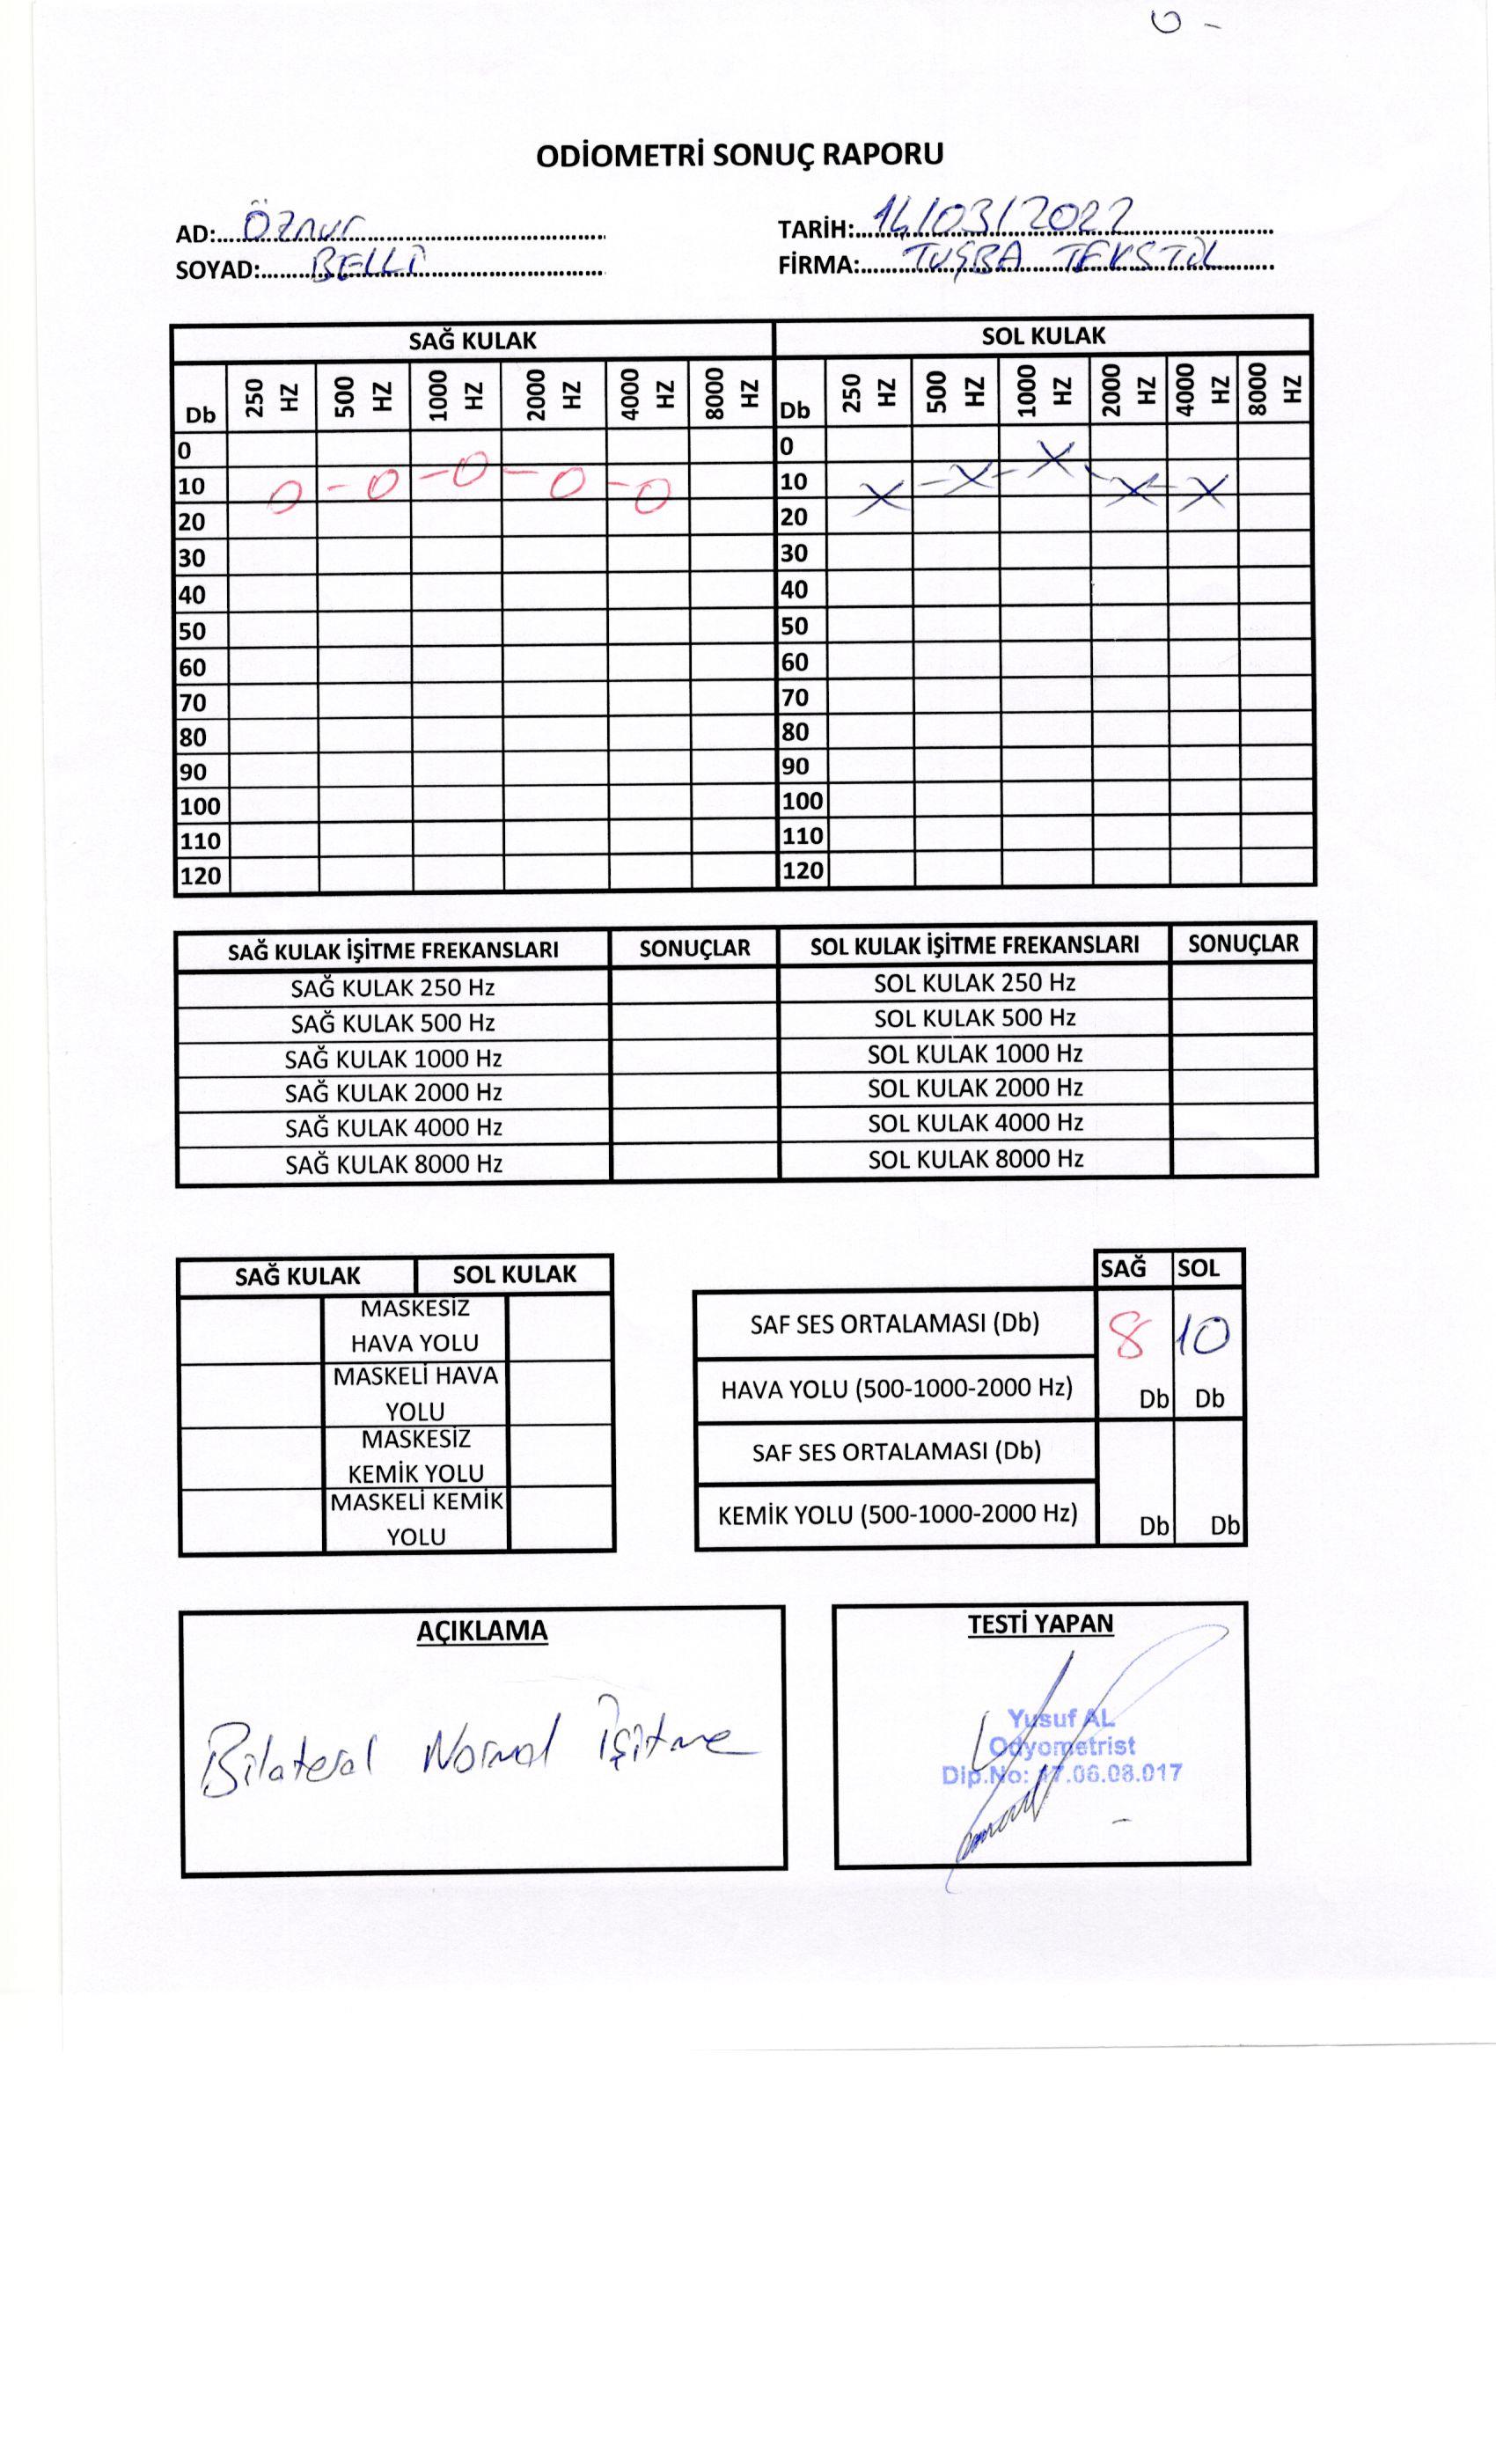 ODİOMETRİ SONUÇ RAPORU
AD: ÖZNUR TARİH: 14/03/2022
SOYAD: BELLİ FİRMA: TUĞBA TEKSTİL
SAĞ KULAK SOL KULAK
Db 250 HZ 500 HZ 1000 HZ 2000 HZ 4000 HZ 8000 HZ Db 250 HZ 500 HZ 1000 HZ 2000 HZ 4000 HZ 8000 HZ
0 0
10 10
20 20
30 30
40 40
50 50
60 60
70 70
80 80
90 90
100 100
110 110
120 120
SAĞ KULAK İŞİTME FREKANSLARI SONUÇLAR SOL KULAK İŞİTME FREKANSLARI SONUÇLAR
SAĞ KULAK 250 Hz SOL KULAK 250 Hz
SAĞ KULAK 500 Hz SOL KULAK 500 Hz
SAĞ KULAK 1000 Hz SOL KULAK 1000 Hz
SAĞ KULAK 2000 Hz SOL KULAK 2000 Hz
SAĞ KULAK 4000 Hz SOL KULAK 4000 Hz
SAĞ KULAK 8000 Hz SOL KULAK 8000 Hz
SAĞ KULAK SOL KULAK
MASKESİZ
HAVA YOLU
MASKELİ HAVA
YOLU
MASKESİZ
KEMİK YOLU
MASKELİ KEMİK
YOLU
SAĞ SOL
SAF SES ORTALAMASI (Db) 8 10
HAVA YOLU (500-1000-2000 Hz) Db Db
SAF SES ORTALAMASI (Db)
KEMİK YOLU (500-1000-2000 Hz) Db Db
AÇIKLAMA
Bilateral Normal İşitme
TESTİ YAPAN
Yusuf AL
Odyometrist
Dip.No: .06.08.017